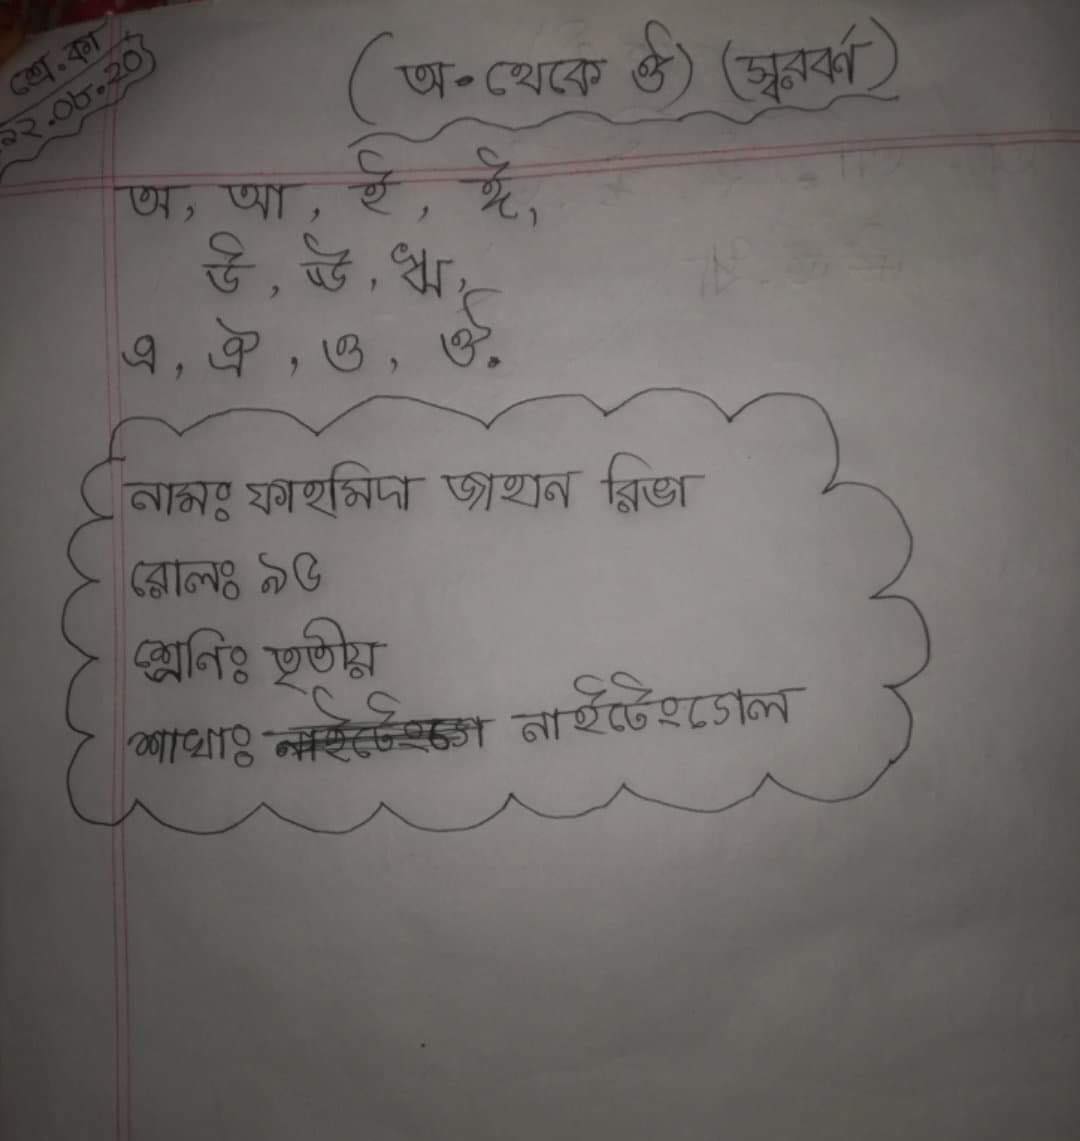 শ্রে.কা
২২.০৮.২০
(অ-থেকে ঔ) (স্বরবর্ণ)
অ, আ, ই, ঈ,
উ, ঊ, ঋ,
এ, ঐ, ও, ঔ.
নামঃ ফাহমিদা জাহান রিভা
রোলঃ ৯৬
শ্রেনিঃ তৃতীয়
শাখাঃ নাইটেংগেল